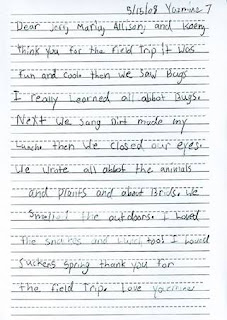 5/15/08 Yazmine J
Dear Jery, Marlig, Allison, and Koey.
Think you for the Field Trip it was
fun and cool. then we saw Bugs
I really learned all abbot Bugs.
Next we sang Dirt made my
Lunch. then we closed our eyes.
We wrote all abbot the animals
and plants and about Brids. We
Smelled the outdoors. I Loved
the snacks and Lunch too! I Loved
Suckers spring thank you for
the field Trip. Love